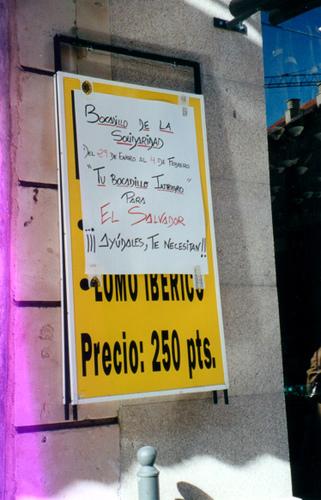 BOCADILLO DE LA
SOLIDARIDAD
DEL 29 DE ENERO AL 4 DE FEBRERO
"TU BOCADILLO INTIMO"
PARA
EL SALVADOR
¡¡¡ AYÚDALES, TE NECESITAN!!
LOMO IBERICO
Precio: 250 pts.